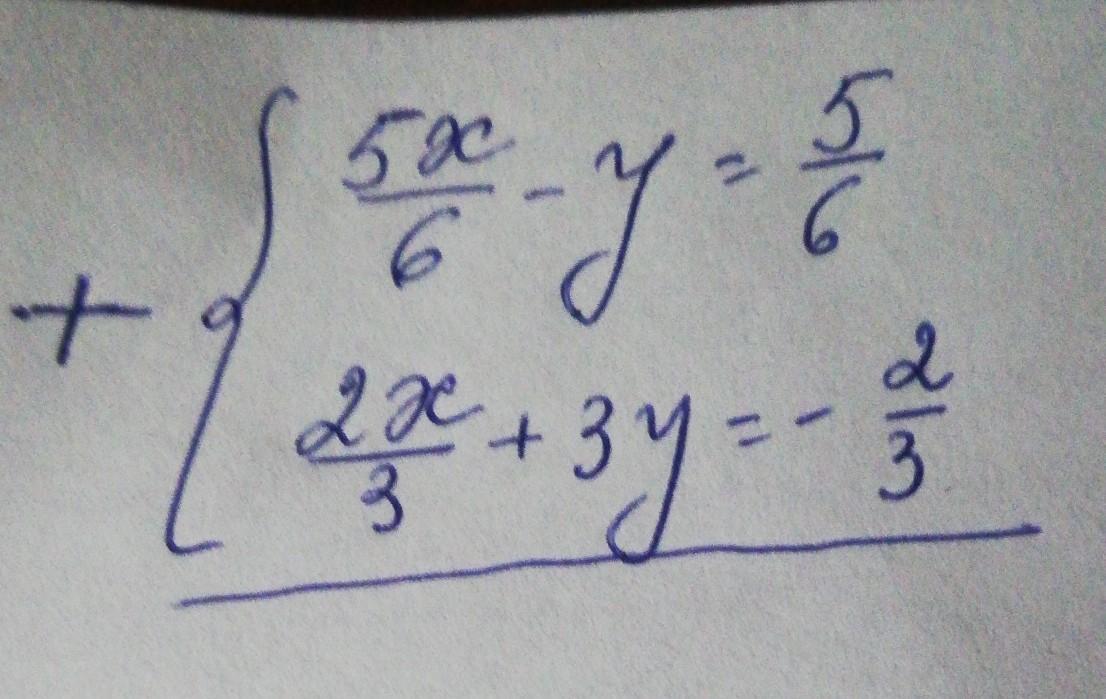 + { 5x/6 - y = 5/6
2x/3 + 3y = - 2/3